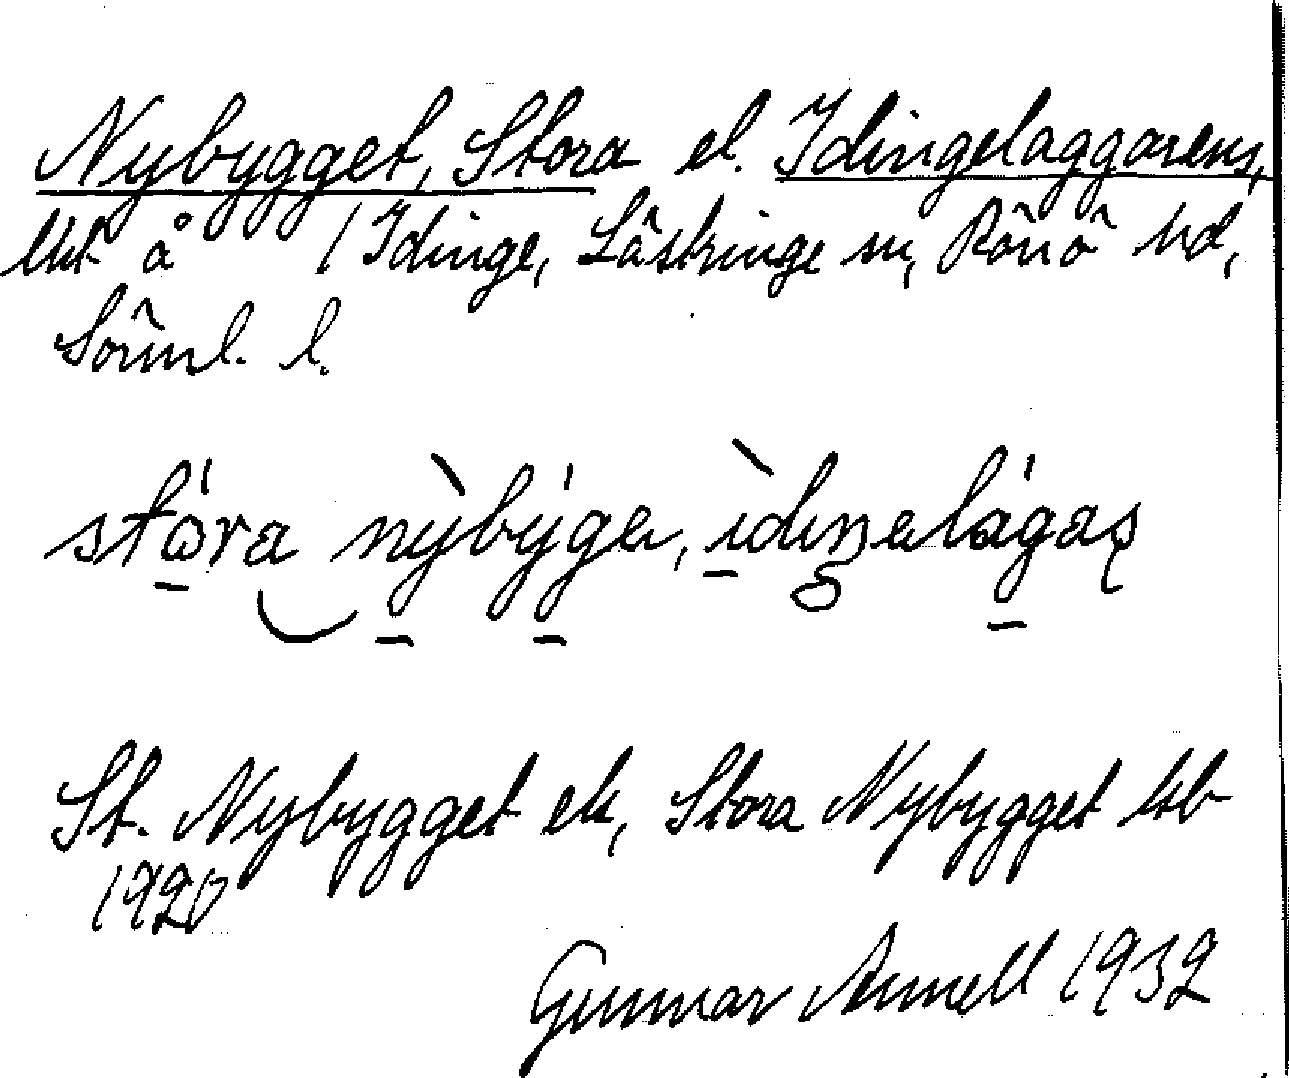 Nybygget, Stora el. Idingelaggarens,
lht å 1 Idinge, Lästringe sn, Rönö hd,
Sörml. l.
stóra nỳbýgeṭ, ìdiŋelágaṣ
St. Nybygget ek, Stora Nybygget ktb
1920
Gunnar Annell 1932